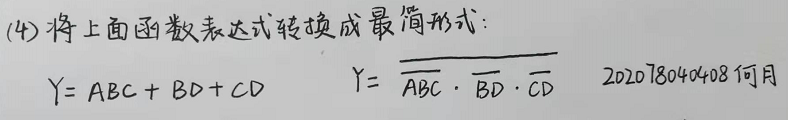 (4) 将上面函数表达式转换成最简形式:
Y = ABC + BD + CD Y = \overline{\overline{ABC} · \overline{BD} · \overline{CD}} 202078040408 何月